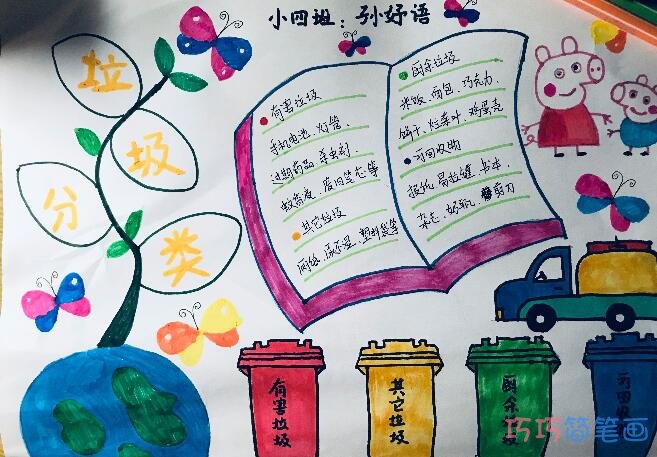 小四班：孙好语
垃
圾
分
类
有害垃圾
手机电池、灯管、
过期药品、杀虫剂、
蚊香皮、废旧笔芯等
其它垃圾
厕纸、尿不湿、塑料袋等
厨余垃圾
米饭、面包、巧克力、
饼干、烂菜叶、鸡蛋壳
可回收物
报纸、易拉罐、书本、
杂志、奶瓶、剪刀
有害垃圾
其它垃圾
厨余垃圾
可回收
巧巧简笔画